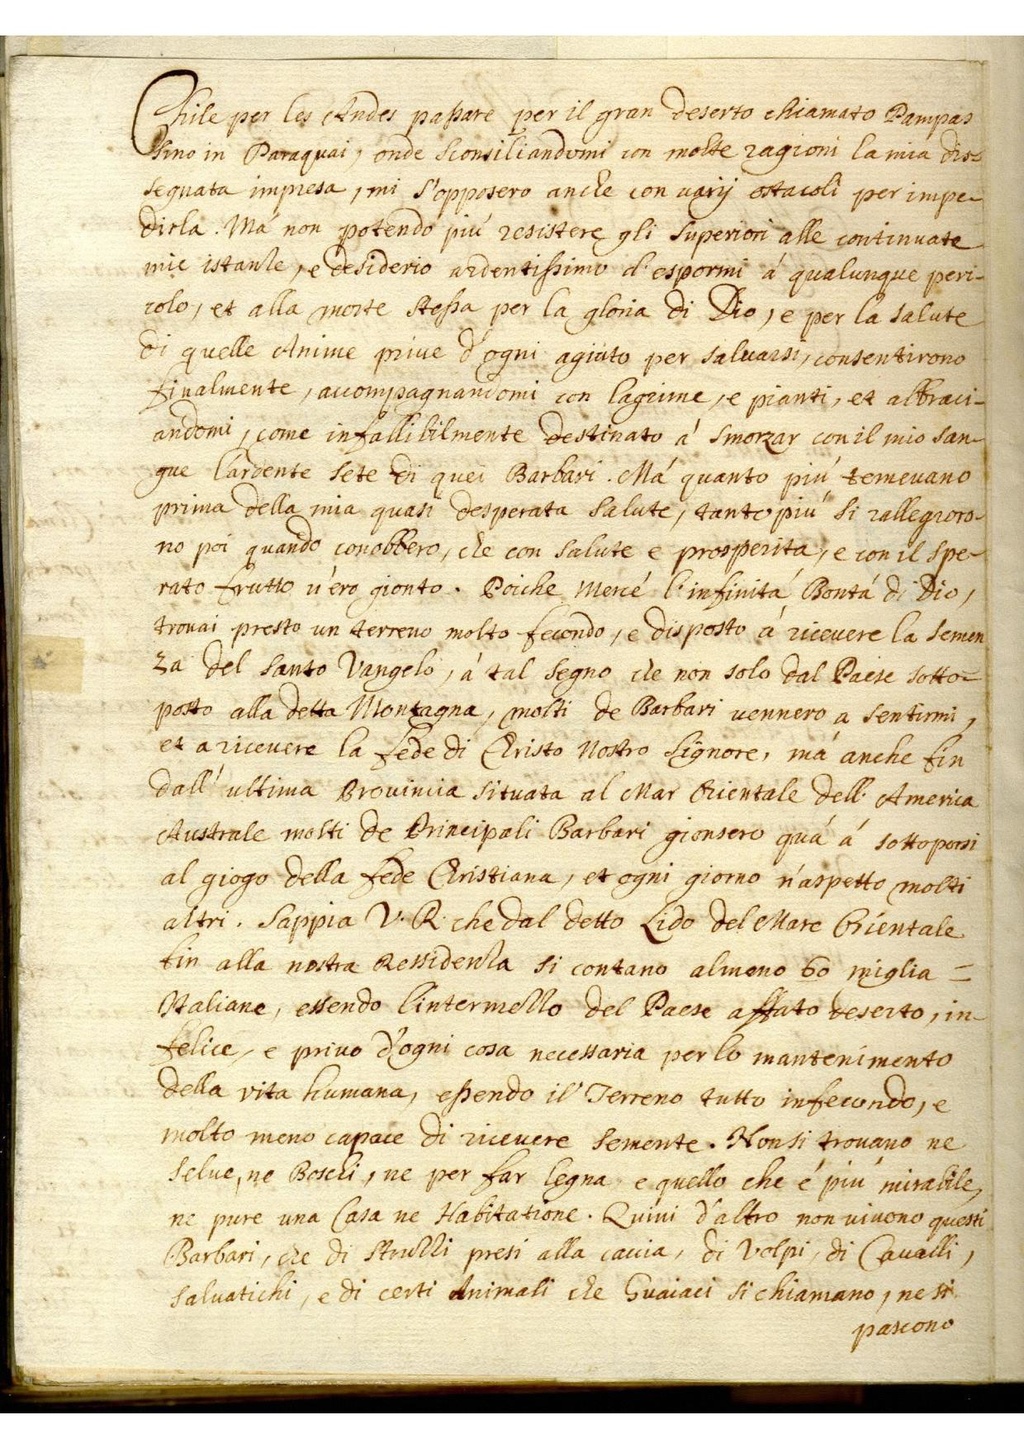 Chile per les Andes passare per il gran deserto chiamato Pampas
sino in Paraquai, onde sconsiliandomi con molte ragioni la mia dis=
segnata impresa, mi s'opposero anche con varij ostacoli per impe-
dirla. Má non potendo piú resistere gli superiori alle continuate
mie istanze, e desiderio ardentissimo d'espormi á qualunque peri-
colo, et alla morte stessa per la gloria di Dio, e per la salute
di quelle Anime prive d'ogni agiuto per salvarsi, consentirono
finalmente, accompagnandomi con lagrime, e pianti, et abbraci-
andomi, come infallibilmente destinato á smorzar con il mio san-
gue l'ardente sete di quei Barbari. Má quanto piú temevano
prima della mia quasi desperata salute, tanto piú si rallegroro-
no poi quando conobbero, che con salute e prosperita, e con il spe-
rato frutto v'ero gionto. Poiche Mercé l'infinitá Bontá di Dio,
trovai presto un terreno molto fecondo, e disposto á ricevere la semen
za del Santo Vangelo, á tal segno che non solo dal Paese sotto=
posto alla detta Montagna, molti de Barbari vennero a sentirmi,
et a ricevere la fede di Cristo Nostro Signore, má anche fin
dall' ultima Provincia situata al Mar Orientale dell' America
Australe molti de Principali Barbari gionsero quá á sottoporsi
al giogo della fede Cristiana, et ogni giorno n'aspetto molti
altri. Sappia V. R. che dal detto Lido del Mare Orientale
fin alla nostra Residenza si contano almeno 60 miglia =
Italiane, essendo l'intermezzo del Paese affato deserto, in-
felice, e privo d'ogni cosa necessaria per lo mantenimento
della vita humana, essendo il Terreno tutto infecondo, e
molto meno capace di ricevere semente. Non si trovano ne
selve, ne Boschi, ne per far legna e quello che é piú mirabile,
ne pure una Casa ne Habitatione. Quivi d'altro non vivono questi
Barbari, che di Struzzi presi alla caccia, di Volpi, di Cavalli,
salvatichi, e di certi Animali che Guaiaci si chiamano, ne si
pascono